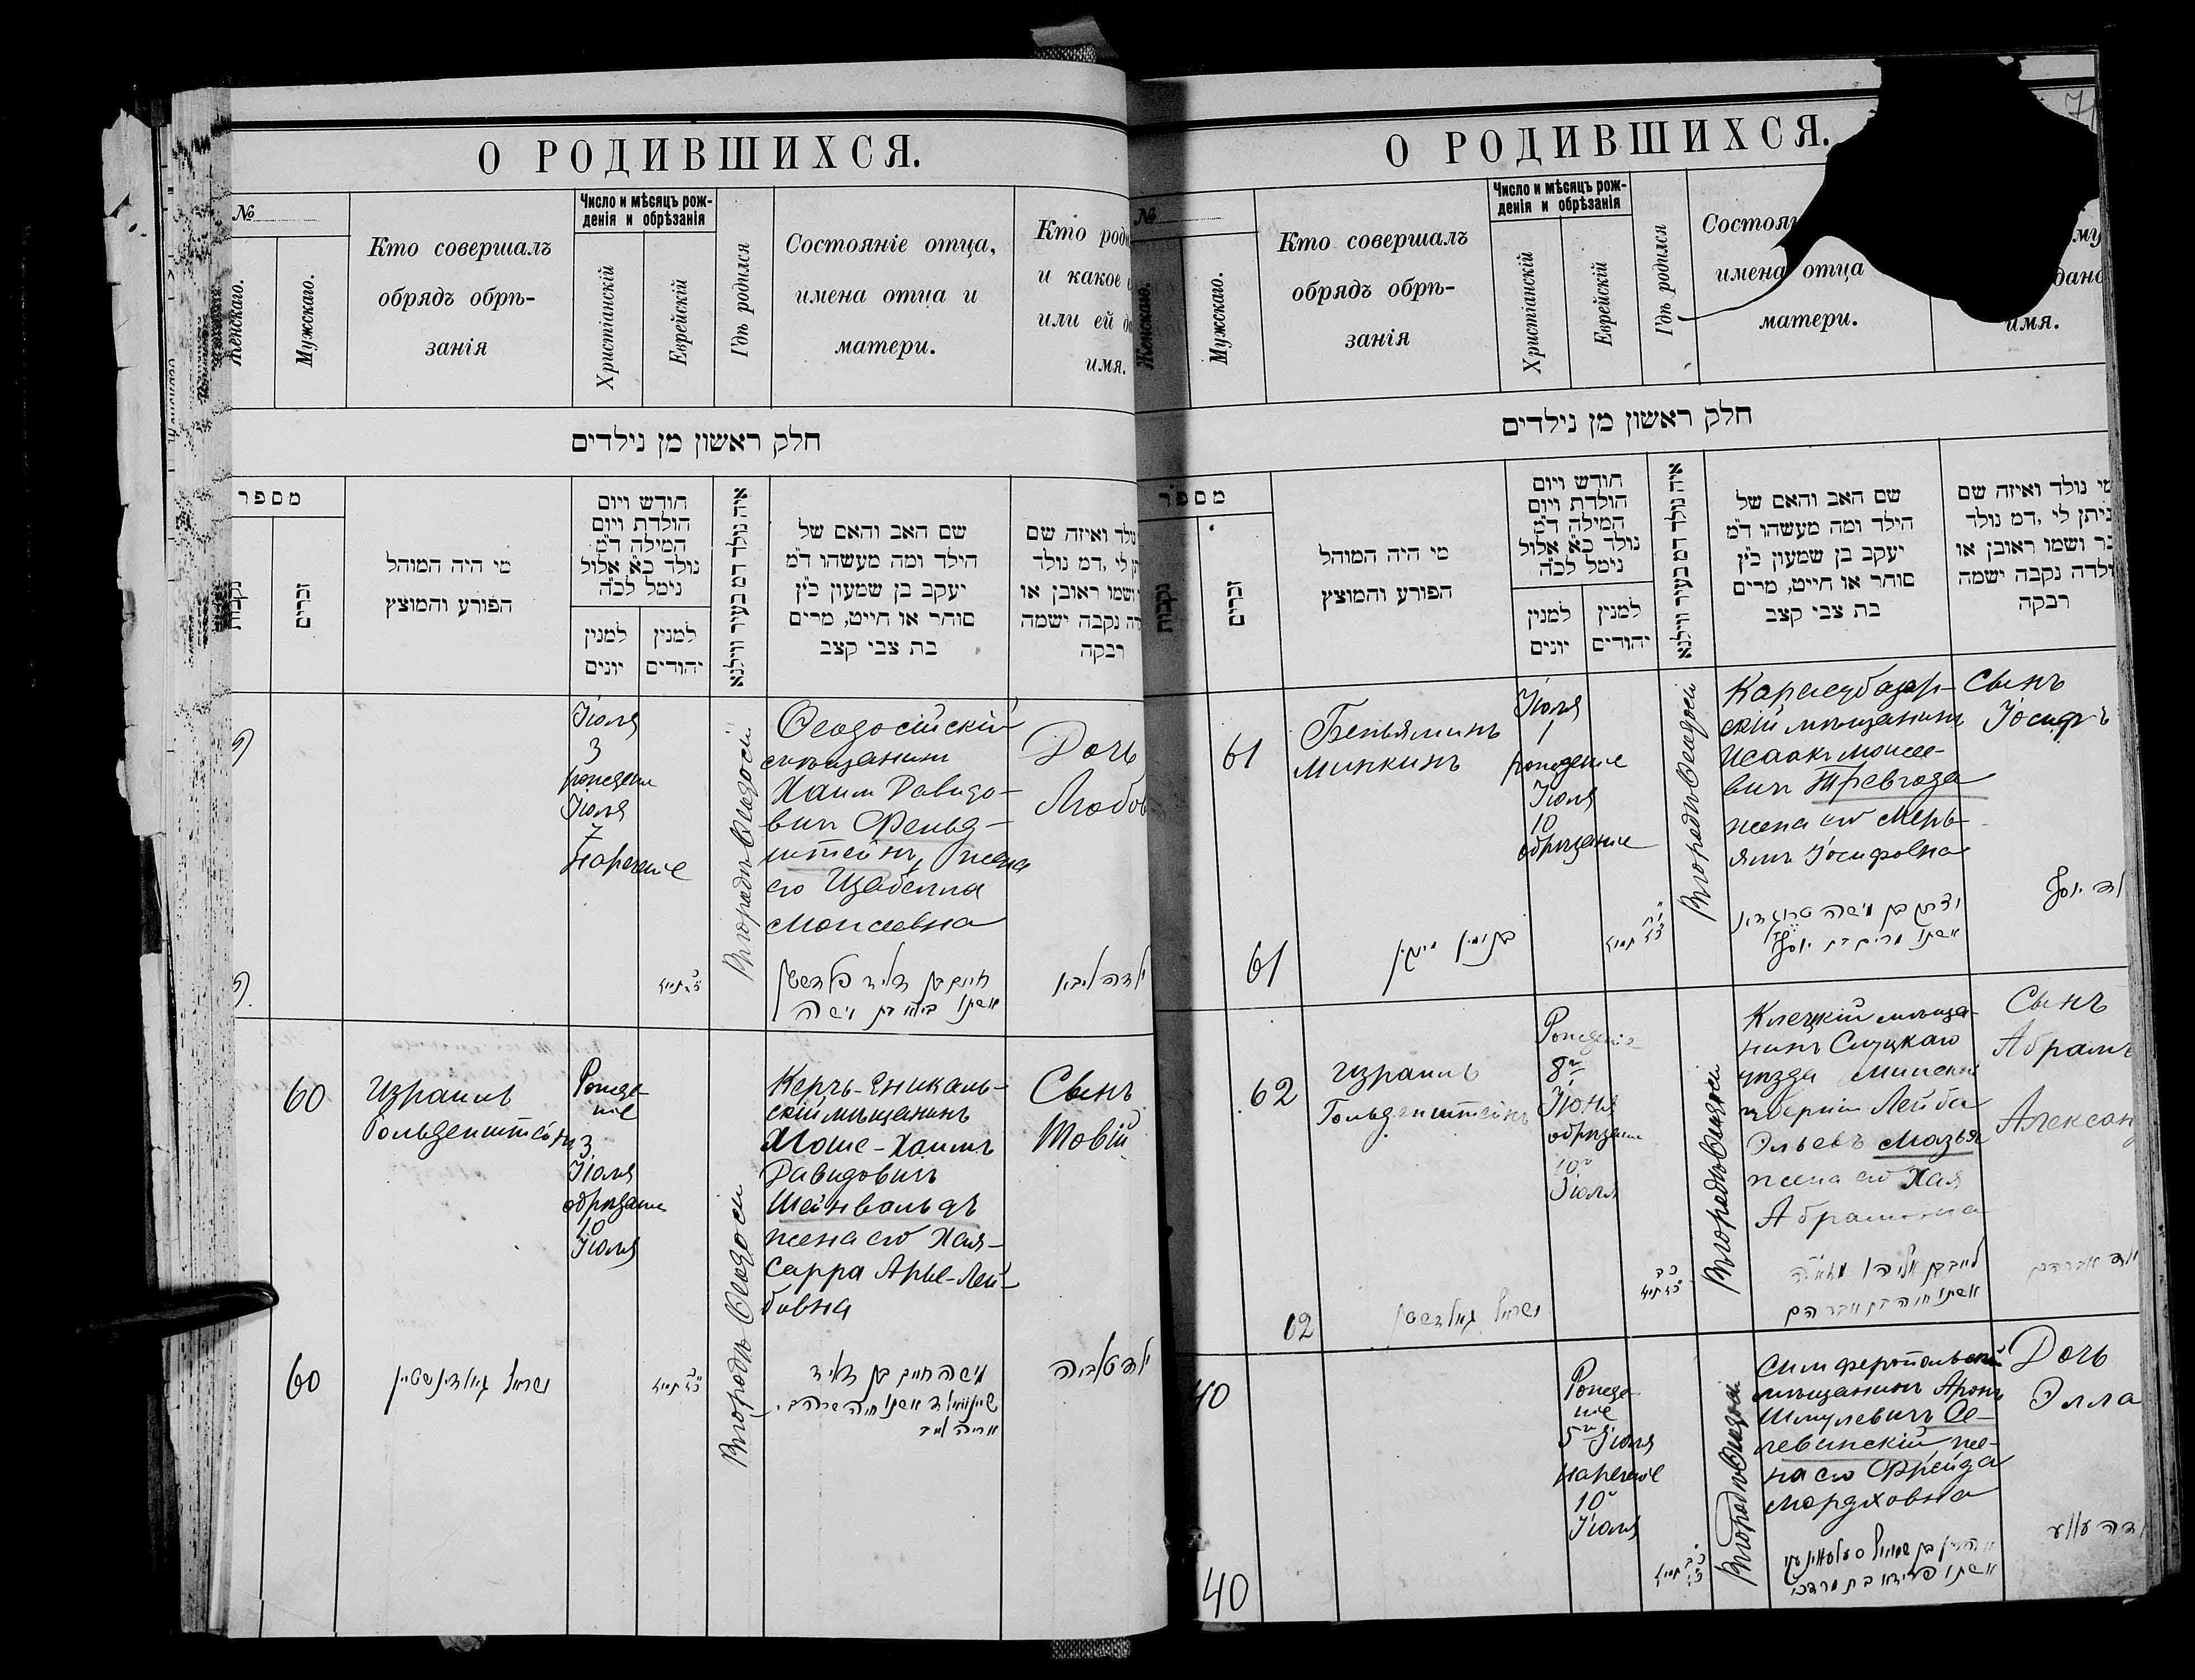 О РОДИВШИХСЯ.
№
Женскаго.
Мужскаго.
Кто совершалъ
обрядъ обрѣ-
занія
Число и мѣсяцъ рож-
денія и обрѣзанія
Христіанскій
Еврейскій
Гдѣ родился
Состояніе отца,
имена отца и
матери.
Кто
и какое
или ей
имя.
חלק ראשון מן נילדים
מספר
זכרים
מי היה המוהל
הפורע והמוצץ
חודש ויום
הולדת ויום
המילה ד״מ
נולד כ״א אלול
נימל לכ״ה
למנין
יונים
למנין
יהודים
איה נולד דמ בעיר ווילנא
שם האב והאם של
הילד ומה מעשהו ד״מ
יעקב בן שמעון כ״ץ
סוחר או חייט, מרים
בת צבי קצב
ואיזה שם
לי, דמ נולד
ושמו ראובן או
נקבה ישמה
רבקה
Іюля
3
рожденіе
Іюля
7
нареченіе
Въ городѣ Ѳеодосіи
Ѳеодосійскій
мѣщанинъ
Хаим Давидо-
вич Фельд-
штейнъ, жена
его Изабелла
Моисеевна
Дочь
חיים בן דוד פלדשטין
אשתו בילא בת משה
ילדה ליבא
60
Израиль
Гольденштейнъ
Рожде-
ніе
3
Іюля
обрѣзаніе
10
Іюля
Въ городѣ Ѳеодосіи
Керчь-Еникаль-
скій мѣщанинъ
Моше-Хаимъ
Давидовичъ
Шейнвальдъ
жена его Хая-
Сарра Арье-Лей-
бовна
Сынъ
Товій
60
ישראל גאלדינשטיין
משה חיים בן דוד
ילד טוביה
О РОДИВШИХСЯ.
№
Женскаго.
Мужскаго.
Кто совершалъ
обрядъ обрѣ-
занія
Число и мѣсяцъ рож-
денія и обрѣзанія
Христіанскій
Еврейскій
Гдѣ родился
имена отца
матери.
имя.
חלק ראשון מן נילדים
מספר
נקבות
זכרים
מי היה המוהל
הפורע והמוצץ
חודש ויום
הולדת ויום
המילה ד״מ
נולד כ״א אלול
נימל לכ״ה
למנין
יונים
למנין
יהודים
איה נולד דמ בעיר ווילנא
שם האב והאם של
הילד ומה מעשהו ד״מ
יעקב בן שמעון כ״ץ
סוחר או חייט, מרים
בת צבי קצב
מי נולד ואיזה שם
ניתן לי, דמ נולד
ושמו ראובן או
נקבה ישמה
רבקה
61
Беньяминъ
Минкинъ
Іюля
1
рожденіе
Іюля
10
обрѣзаніе
Въ городѣ Ѳеодосіи
Карасубазар-
скій мѣщанинъ
Исаакъ Моисе-
вич Тревгода
жена его Мирь-
ямъ Іосифовна
Сынъ
Іосифъ
61
בנימין מינקין
אשתו מרים בת יוסף
ילד יוסף
62
Израиль
Гольденштейнъ
Рожденіе
8го
Іюня
обрѣзаніе
10го
Іюля
Въ городѣ Ѳеодосіи
Клецкій мѣща-
нинъ Слуцкаго
уѣзда Минской
губерніи Лейба
Эльевъ Мазья
жена его Хая
Абрамовна
Сынъ
Абрамъ
62
ישראל גאלדשטיין
אשתו חיה בת אברהם
ילד אברהם
40
Рожде-
ніе
5го Іюля
нареченіе
10го
Іюля
Въ городѣ Ѳеодосіи
Симферопольскій
мѣщанинъ Аронъ
Шмулевичъ Се-
левинскій же-
на его Фрейда
Мордховна
Дочь
Элла
40
אשתו פריידא בת מרדכי